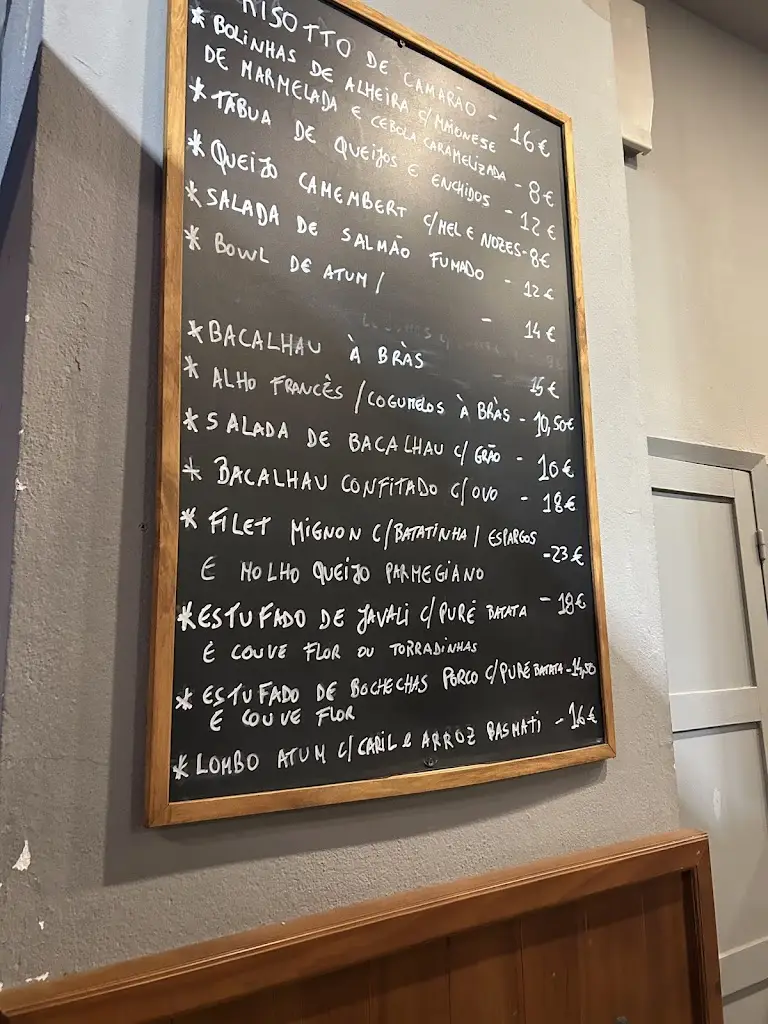 RISOTTO DE CAMARÃO - 16€
* BOLINHAS DE ALHEIRA C/MAIONESE
DE MARMELADA E CEBOLA CARAMELIZADA - 8€
* TÁBUA DE QUEIJOS E ENCHIDOS - 12€
* QUEIJO CAMEMBERT C/MEL E NOZES - 8€
* SALADA DE SALMÃO FUMADO - 12€
* BOWL DE ATUM / - 14€
* BACALHAU À BRÀS 15€
* ALHO FRANCÊS /COGUMELOS À BRÀS - 10,50€
* SALADA DE BACALHAU C/ GRÃO - 10€
* BACALHAU CONFITADO C/OVO - 18€
* FILET MIGNON C/BATATINHA / ESPARGOS
E MOLHO QUEIJO PARMEGIANO -23€
* ESTUFADO DE JAVALI C/PURÉ BATATA - 18€
E COUVE FLOR OU TORRADINHAS
* ESTUFADO DE BOCHECHAS PORCO C/PURÉ BATATA -14,50
E COUVE FLOR
* LOMBO ATUM C/CARIL e ARROZ BASMATI - 16€